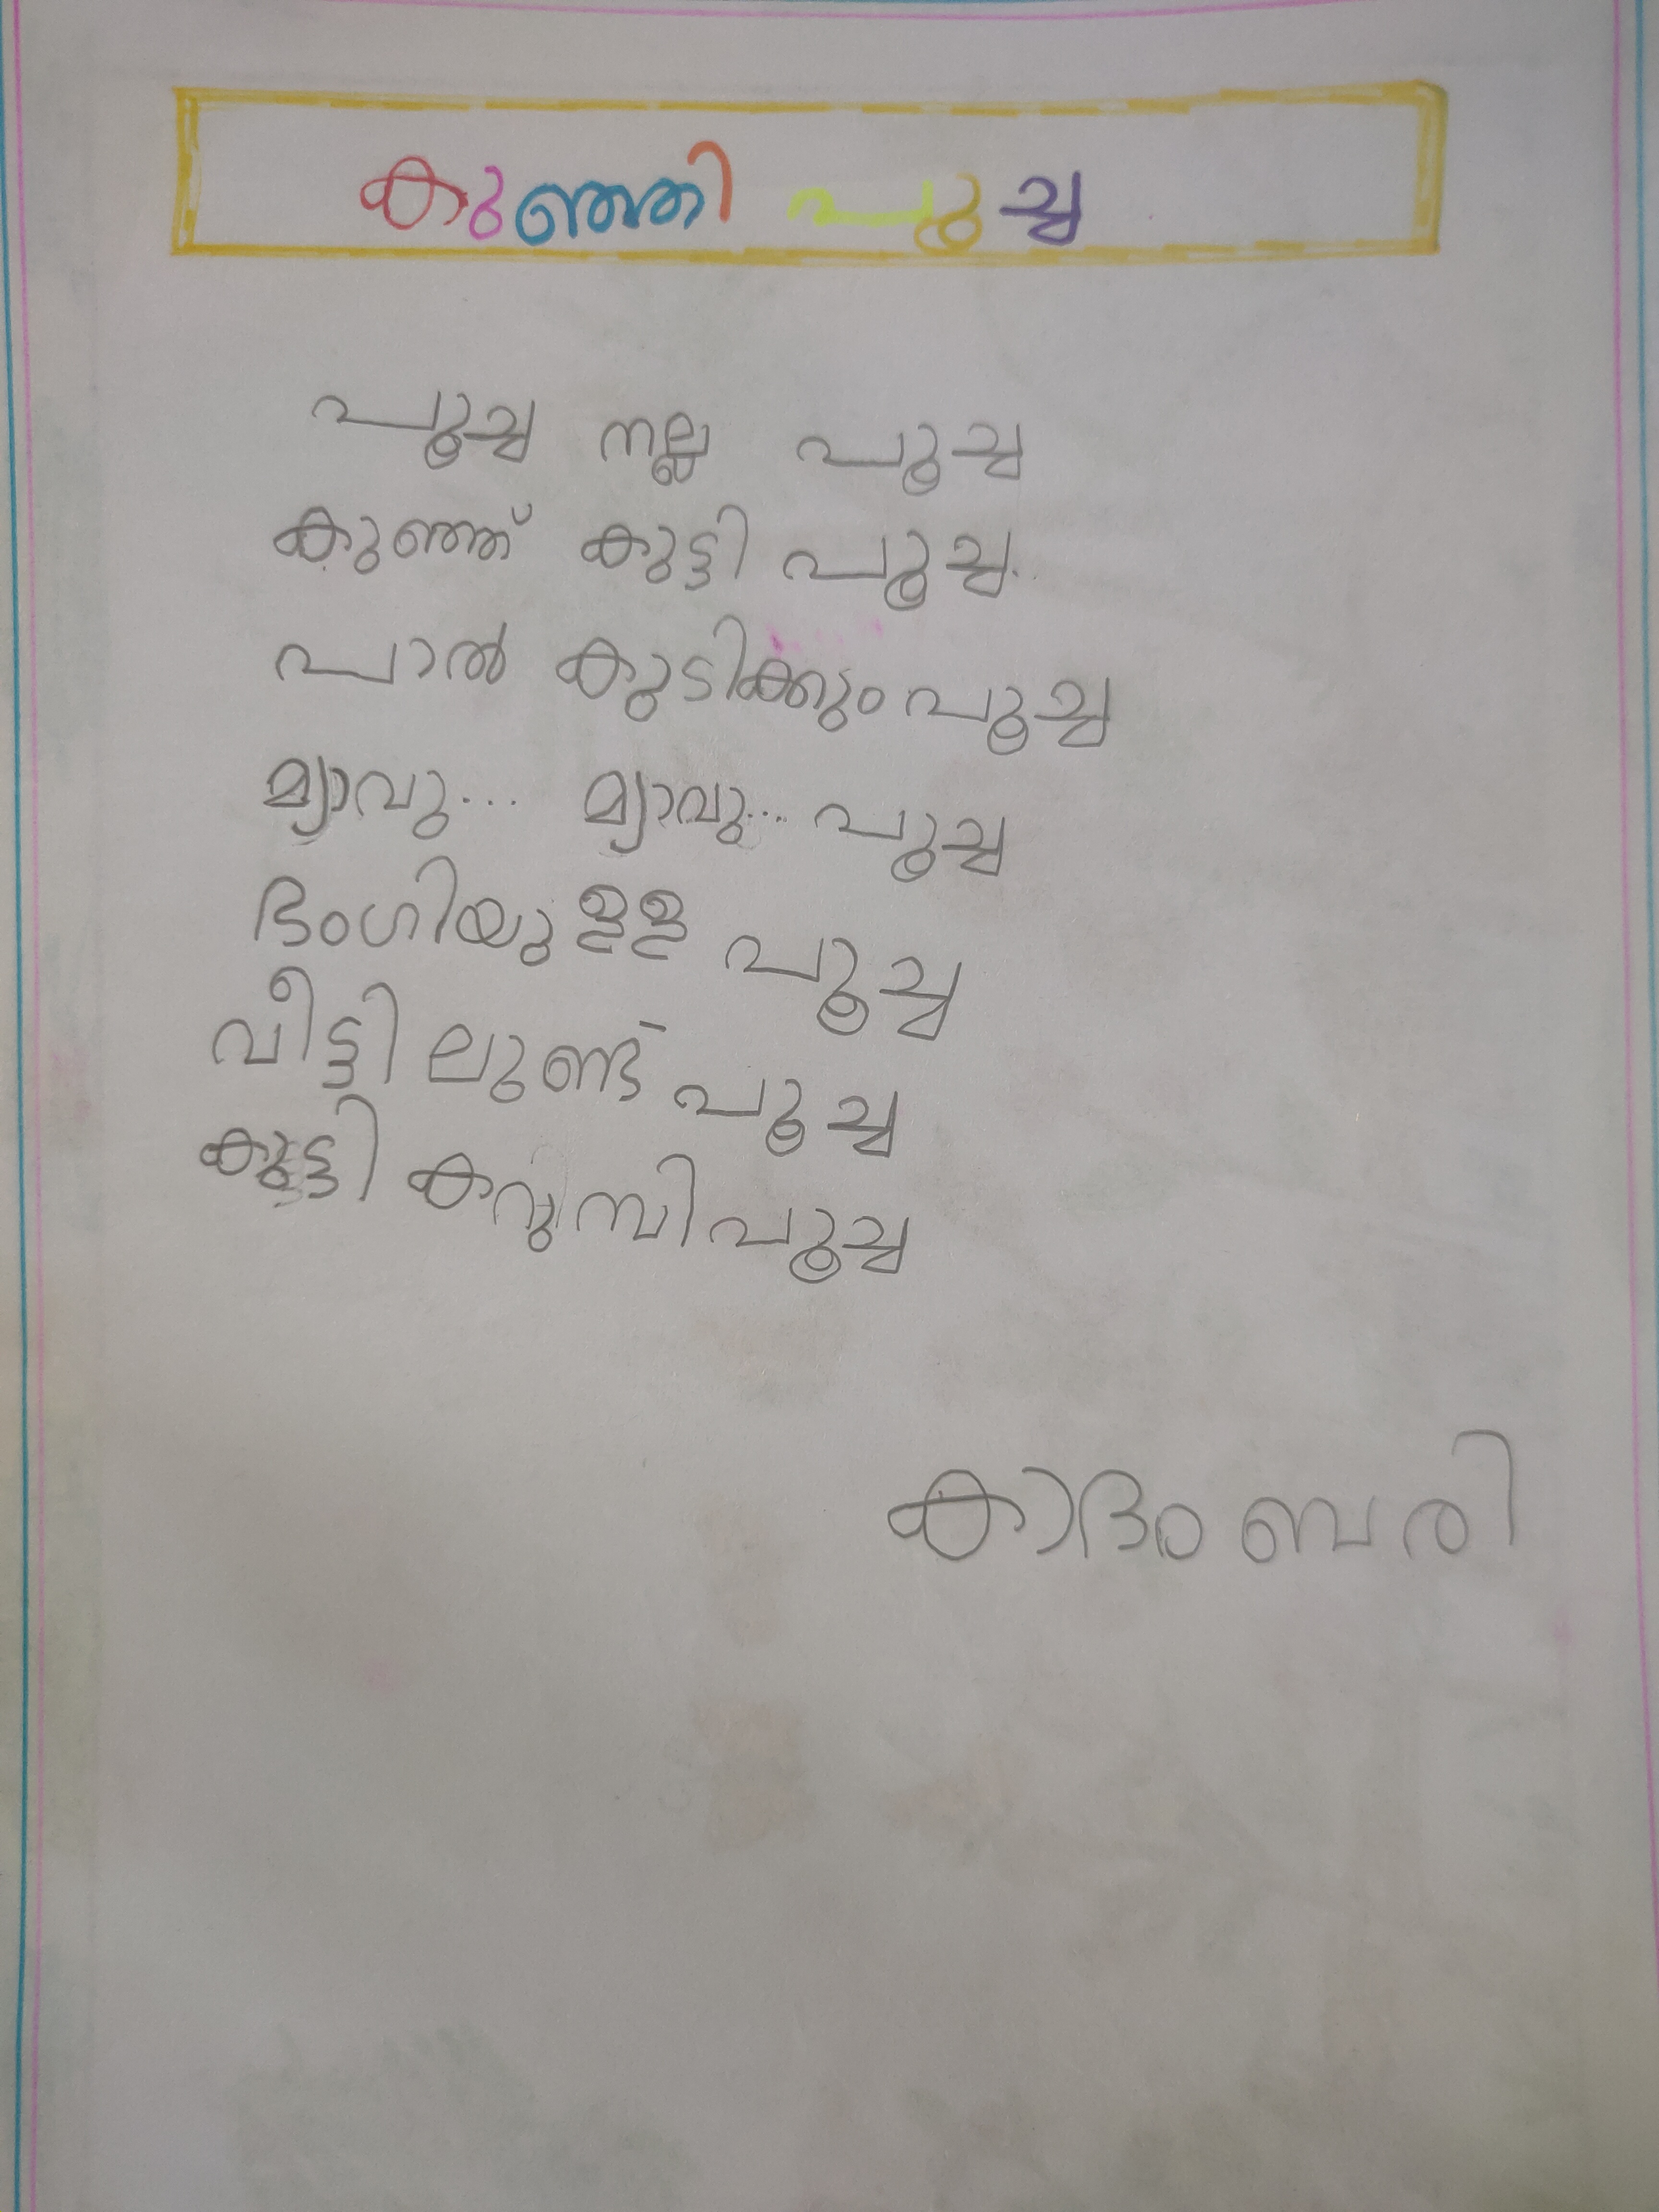 കുഞ്ഞി പൂച്ച
പൂച്ച നല്ല പൂച്ച
കുഞ്ഞ് കുട്ടി പൂച്ച.
പാൽ കുടിക്കും പൂച്ച
മ്യാവു... മ്യാവു... പൂച്ച
ഭംഗിയുള്ള പൂച്ച
വീട്ടിലുണ്ട് പൂച്ച
കുട്ടി കുറുമ്പി പൂച്ച
കാദംബരി